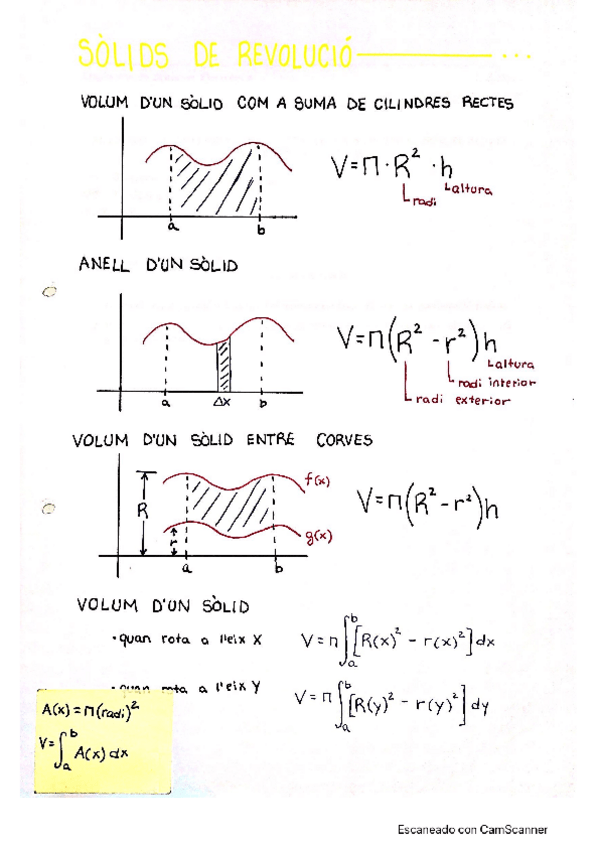 SÒLIDS DE REVOLUCIÓ
VOLUM D'UN SÒLID COM A SUMA DE CILINDRES RECTES
V=π·R²·h
altura
radi
a b
ANELL D'UN SÒLID
V=π(R²-r²)h
altura
radi interior
radi exterior
a Δx b
VOLUM D'UN SÒLID ENTRE CORVES
f(x)
R
V=π(R²-r²)h
r
g(x)
a b
VOLUM D'UN SÒLID
·quan rota a l'eix X V=π∫ₐᵇ[R(x)²-r(x)²]dx
·quan rota a l'eix Y V=π∫ₐᵇ[R(y)²-r(y)²]dy
A(x)=π(radi)²
V=∫ₐᵇ A(x)dx
Escaneado con CamScanner